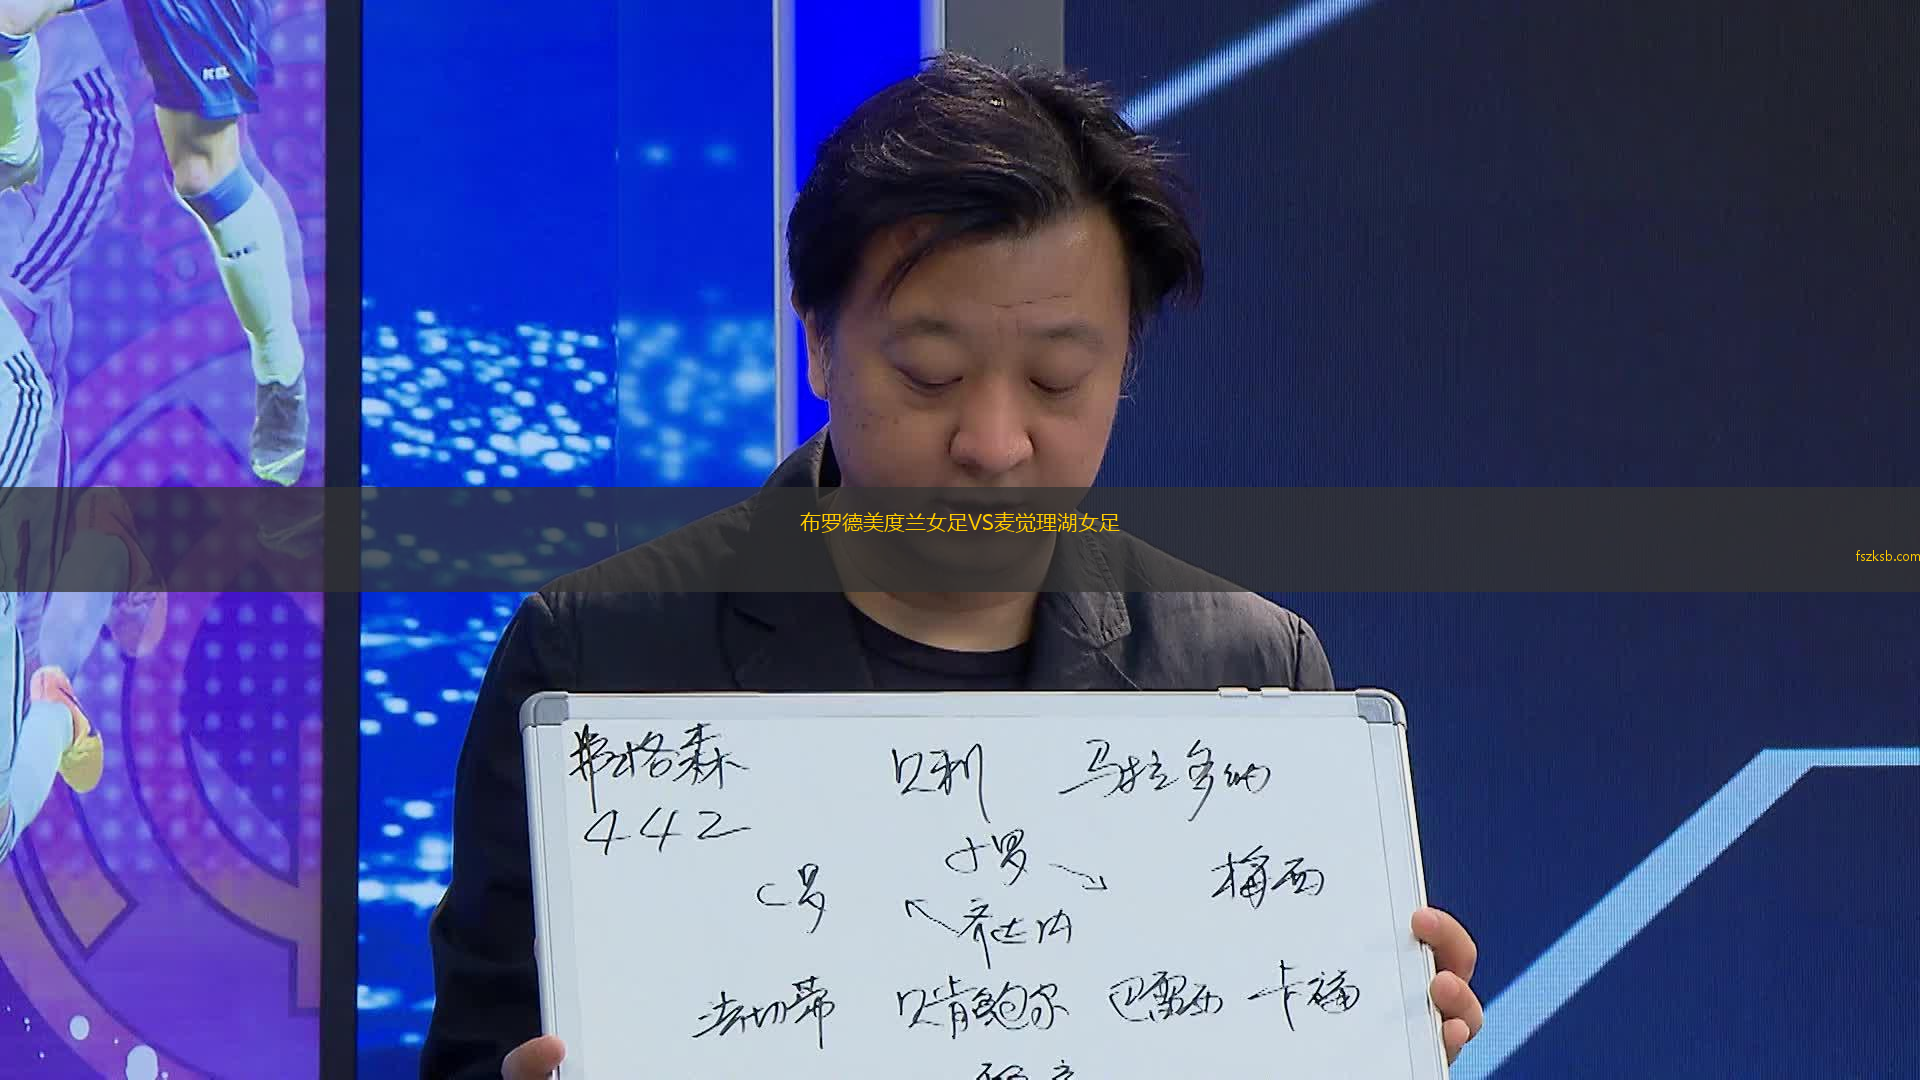 布罗德美度兰女足VS麦觉理湖女足
fszksb.com
弗格森 贝利 马拉多纳
442
小罗
C罗 梅西
齐达内
法切蒂 贝肯鲍尔 巴雷西 卡福